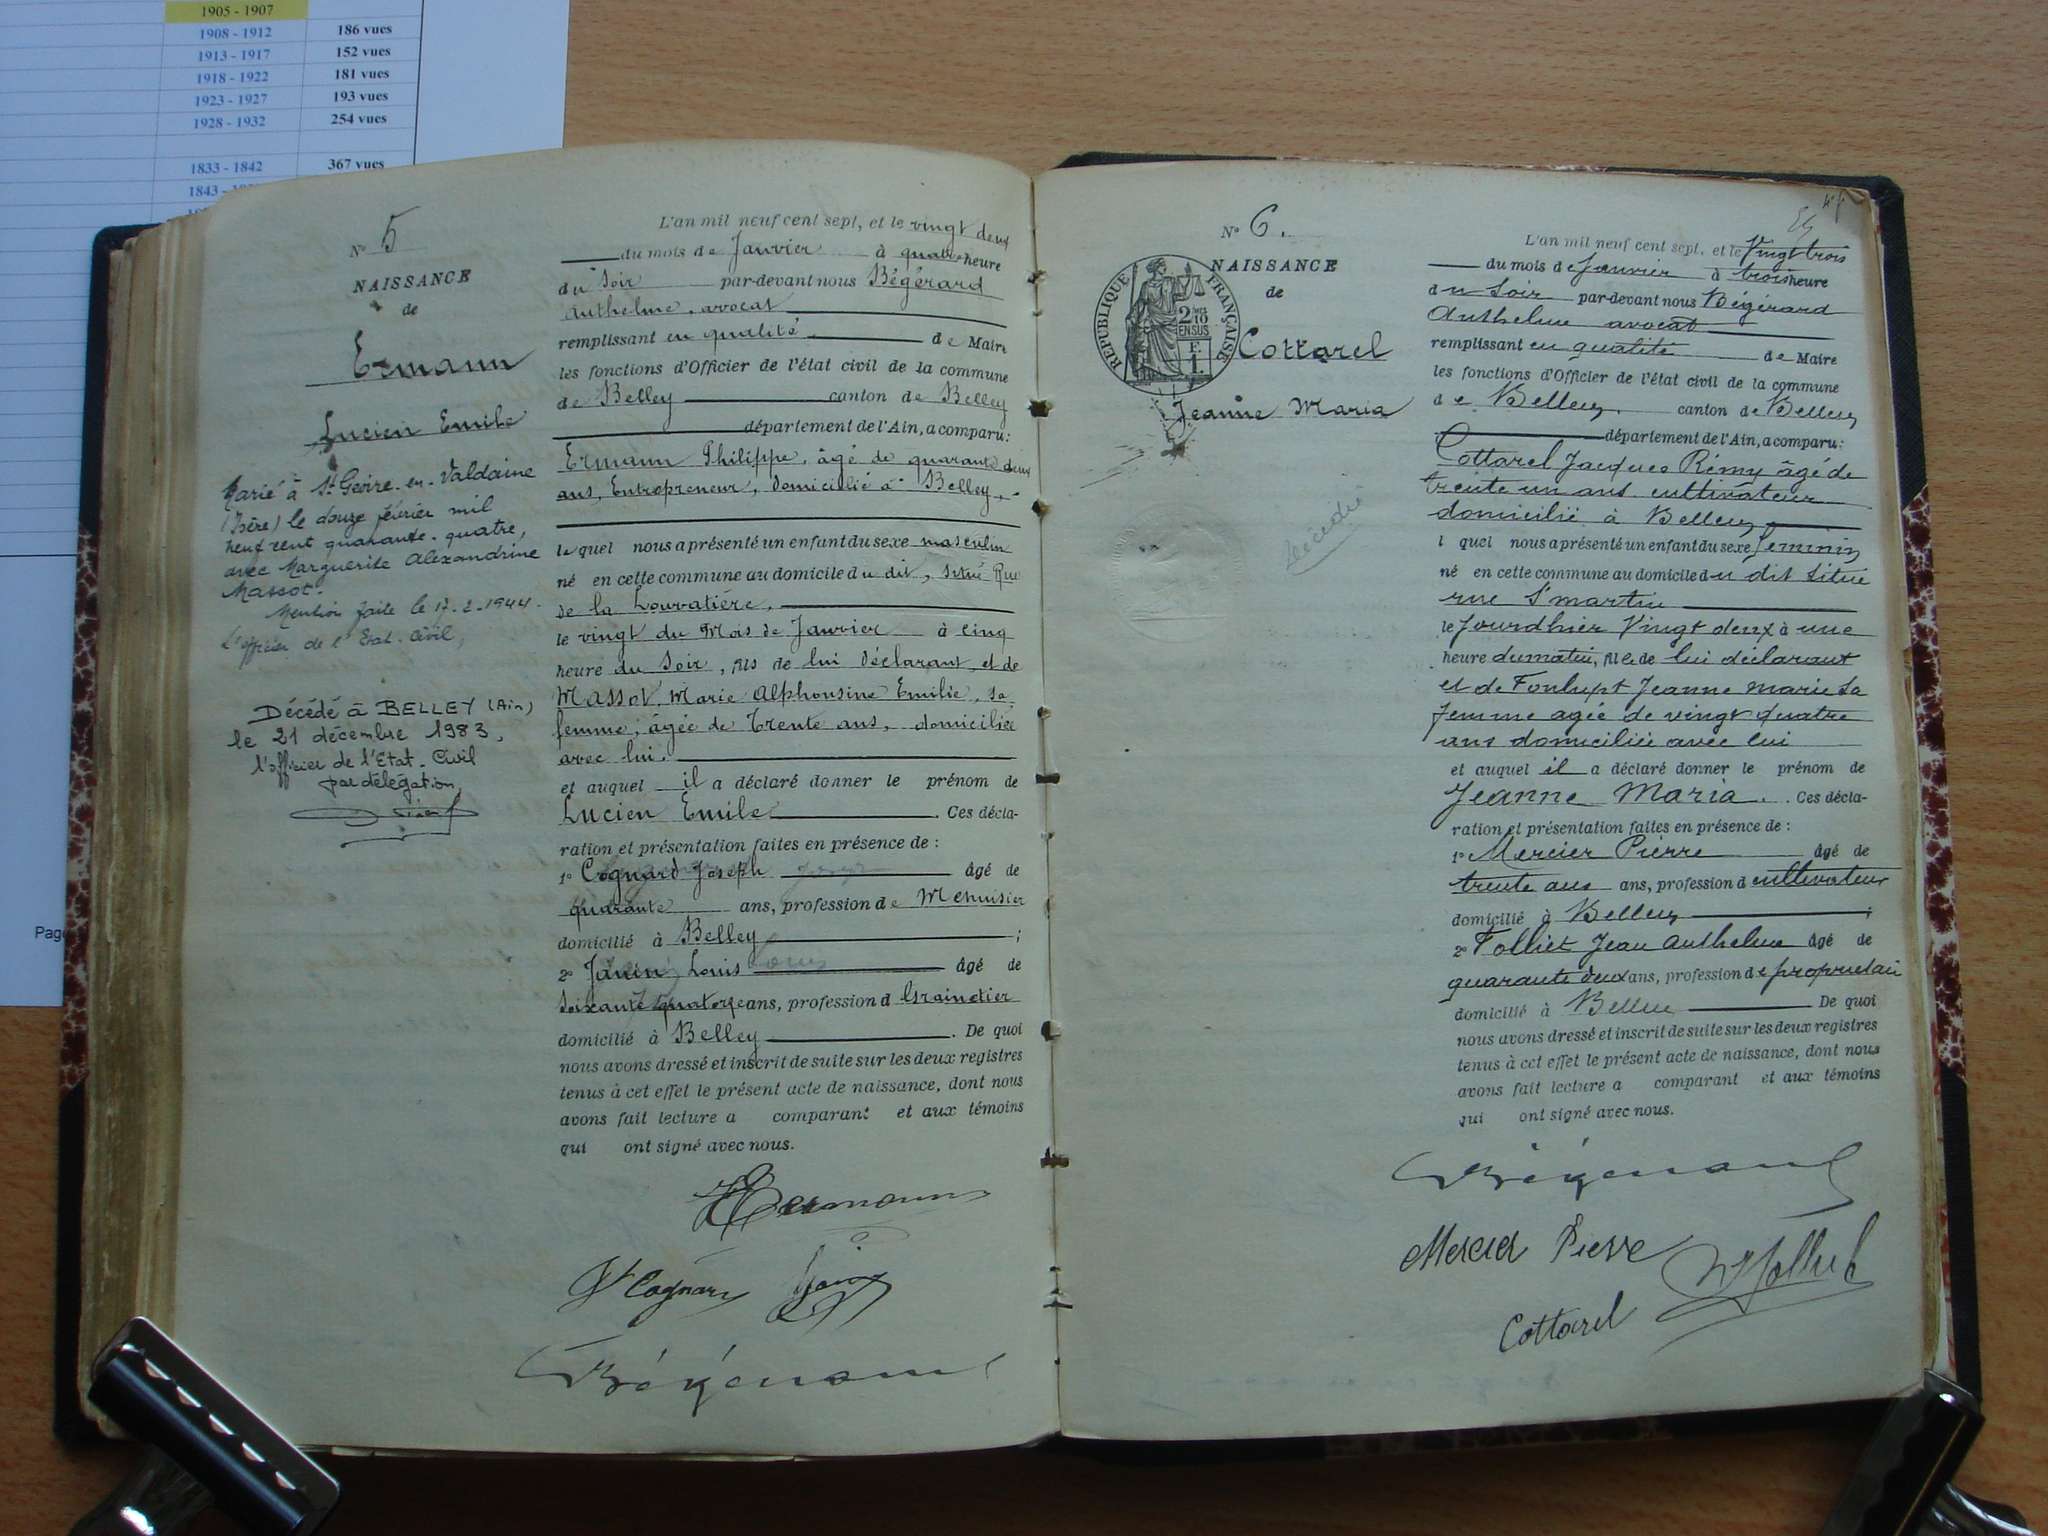 1905 - 1907
1908 - 1912 186 vues
1913 - 1917 152 vues
1918 - 1922 181 vues
1923 - 1927 193 vues
1928 - 1932 254 vues
1833 - 1842 367 vues
1843 -
Page
N° 5
NAISSANCE
de
Ermann
Lucien Emile
Marié à St Geoire-en-Valdaine
(Isère) le douze février mil
neuf cent quarante-quatre,
avec Marguerite Alexandrine
Massot.
Mention faite le 17-2-1944.
L'officier de l'Etat-Civil,
Décédé à BELLEY (Ain)
le 21 décembre 1983,
l'officier de l'Etat-Civil
par délégation,
L'an mil neuf cent sept, et le vingt deux
du mois de Janvier à quatre heure
du soir par-devant nous Bégérard
Anthelme, avocat
remplissant en qualité de Maire
les fonctions d'Officier de l'état civil de la commune
de Belley canton de Belley
département de l'Ain, a comparu:
Ermann Philippe, âgé de quarante deux
ans, Entrepreneur, domicilié à Belley.
le quel nous a présenté un enfant du sexe masculin
né en cette commune au domicile du dit, situé Rue
de la Louvatière,
le vingt du Mois de Janvier à cinq
heure du soir, fils de lui déclarant et de
Massot, Marie Alphonsine Emilie, sa
femme, âgée de Trente ans, domiciliée
avec lui.
et auquel il a déclaré donner le prénom de
Lucien Emile. Ces décla-
ration et présentation faites en présence de :
1° Cognard Joseph âgé de
quarante ans, profession de Menuisier
domicilié à Belley ;
2° Janin Louis âgé de
soixante quatorze ans, profession d Grainetier
domicilié à Belley. De quoi
nous avons dressé et inscrit de suite sur les deux registres
tenus à cet effet le présent acte de naissance, dont nous
avons fait lecture a comparant et aux témoins
qui ont signé avec nous.
Hermann
Cognard
Bégérard
N° 6.
NAISSANCE
de
REPUBLIQUE FRANÇAISE
2/10
EN SUS
F.
1.
Cottarel
Jeanne Maria
décédée
L'an mil neuf cent sept, et le Vingt trois
du mois de Janvier à trois heure
du soir par-devant nous Bégérard
Anthelme avocat
remplissant en qualité de Maire
les fonctions d'Officier de l'état civil de la commune
de Belley. canton de Belley
département de l'Ain, a comparu:
Cottarel Jacques Rémy âgé de
trente un ans cultivateur
domicilié à Belley
l quel nous a présenté un enfant du sexe feminin
né en cette commune au domicile du dit situé
rue St martin
le Jourdhier Vingt deux à une
heure du matin, fille de lui déclarant
et de Fonlupt Jeanne marie sa
femme agée de vingt quatre
ans domiciliée avec lui
et auquel il a déclaré donner le prénom de
Jeanne Maria. Ces décla-
ration et présentation faites en présence de :
1° Mercier Pierre âgé de
trente ans ans, profession d cultivateur
domicilié à Belley ;
2° Folliet Jean Anthelme âgé de
quarante deux ans, profession de proprietair
domicilié à Belley De quoi
nous avons dressé et inscrit de suite sur les deux registres
tenus à cet effet le présent acte de naissance, dont nous
avons fait lecture a comparant et aux témoins
qui ont signé avec nous.
Bégérard
Mercier Pierre
Cottarel